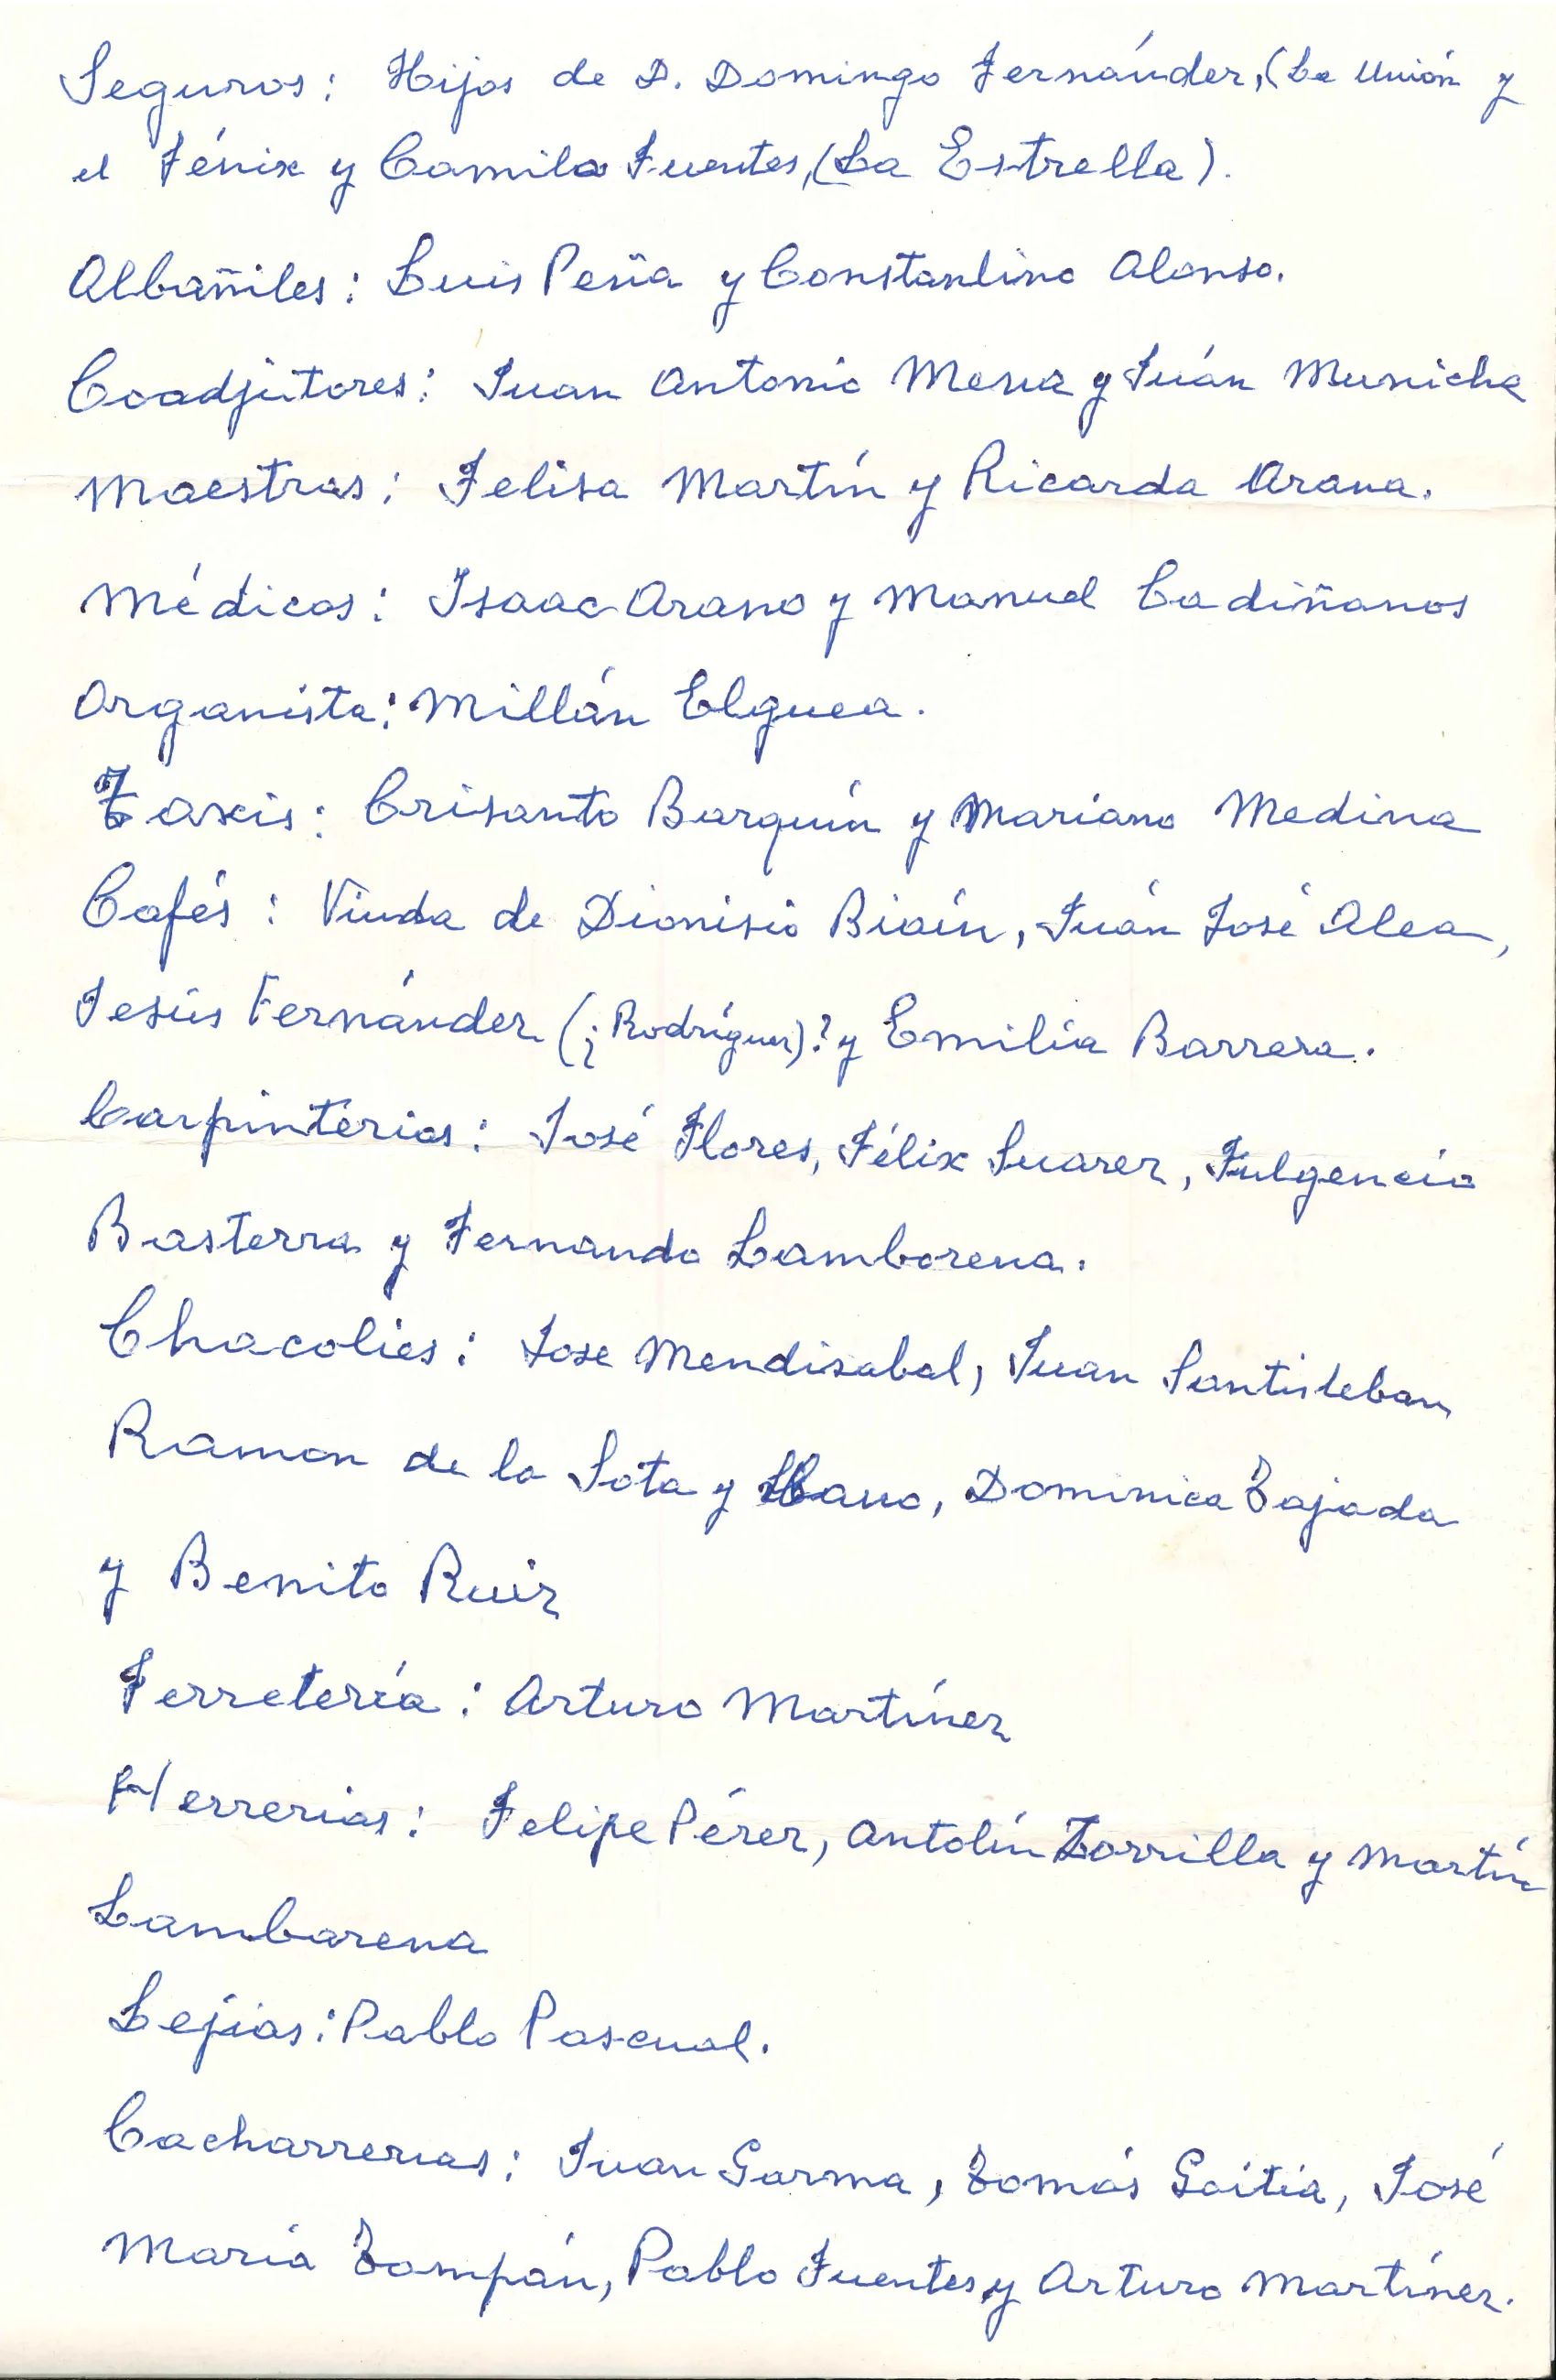 Seguros: Hijos de D. Domingo Fernández, (La Unión y
el Fénix y Camilo Fuentes, (La Estrella).
Albañiles: Luis Peña y Constantino Alonso.
Coadjutores: Juan Antonio Mena y Juán Municha
Maestras: Felisa Martín y Ricarda Arana.
Médicos: Isaac Arano y Manuel Cadiñanos
Organista: Millán Elguea.
Taxis: Crisanto Barquín y Mariano Medina
Cafés: Viuda de Dionisio Biaín, Juán José Alea,
Jesús Fernández (¿Rodríguez)? y Emilia Barrera.
Carpinterias: José Flores, Félix Suarez, Fulgencio
Basterra y Fernando Lamborena.
Chacolies: Jose Mendisabal, Juan Santisteban
Ramon de la Sota y Llano, Dominica Tajada
y Benito Ruiz
Ferretería: Arturo Martínez
Herrerias: Felipe Pérez, Antolín Zorrilla y Martín
Lambarena
Lejias: Pablo Pascual.
Cacharrerias: Juan Garma, Tomás Goitia, José
María Zompán, Pablo Fuentes y Arturo Martínez.